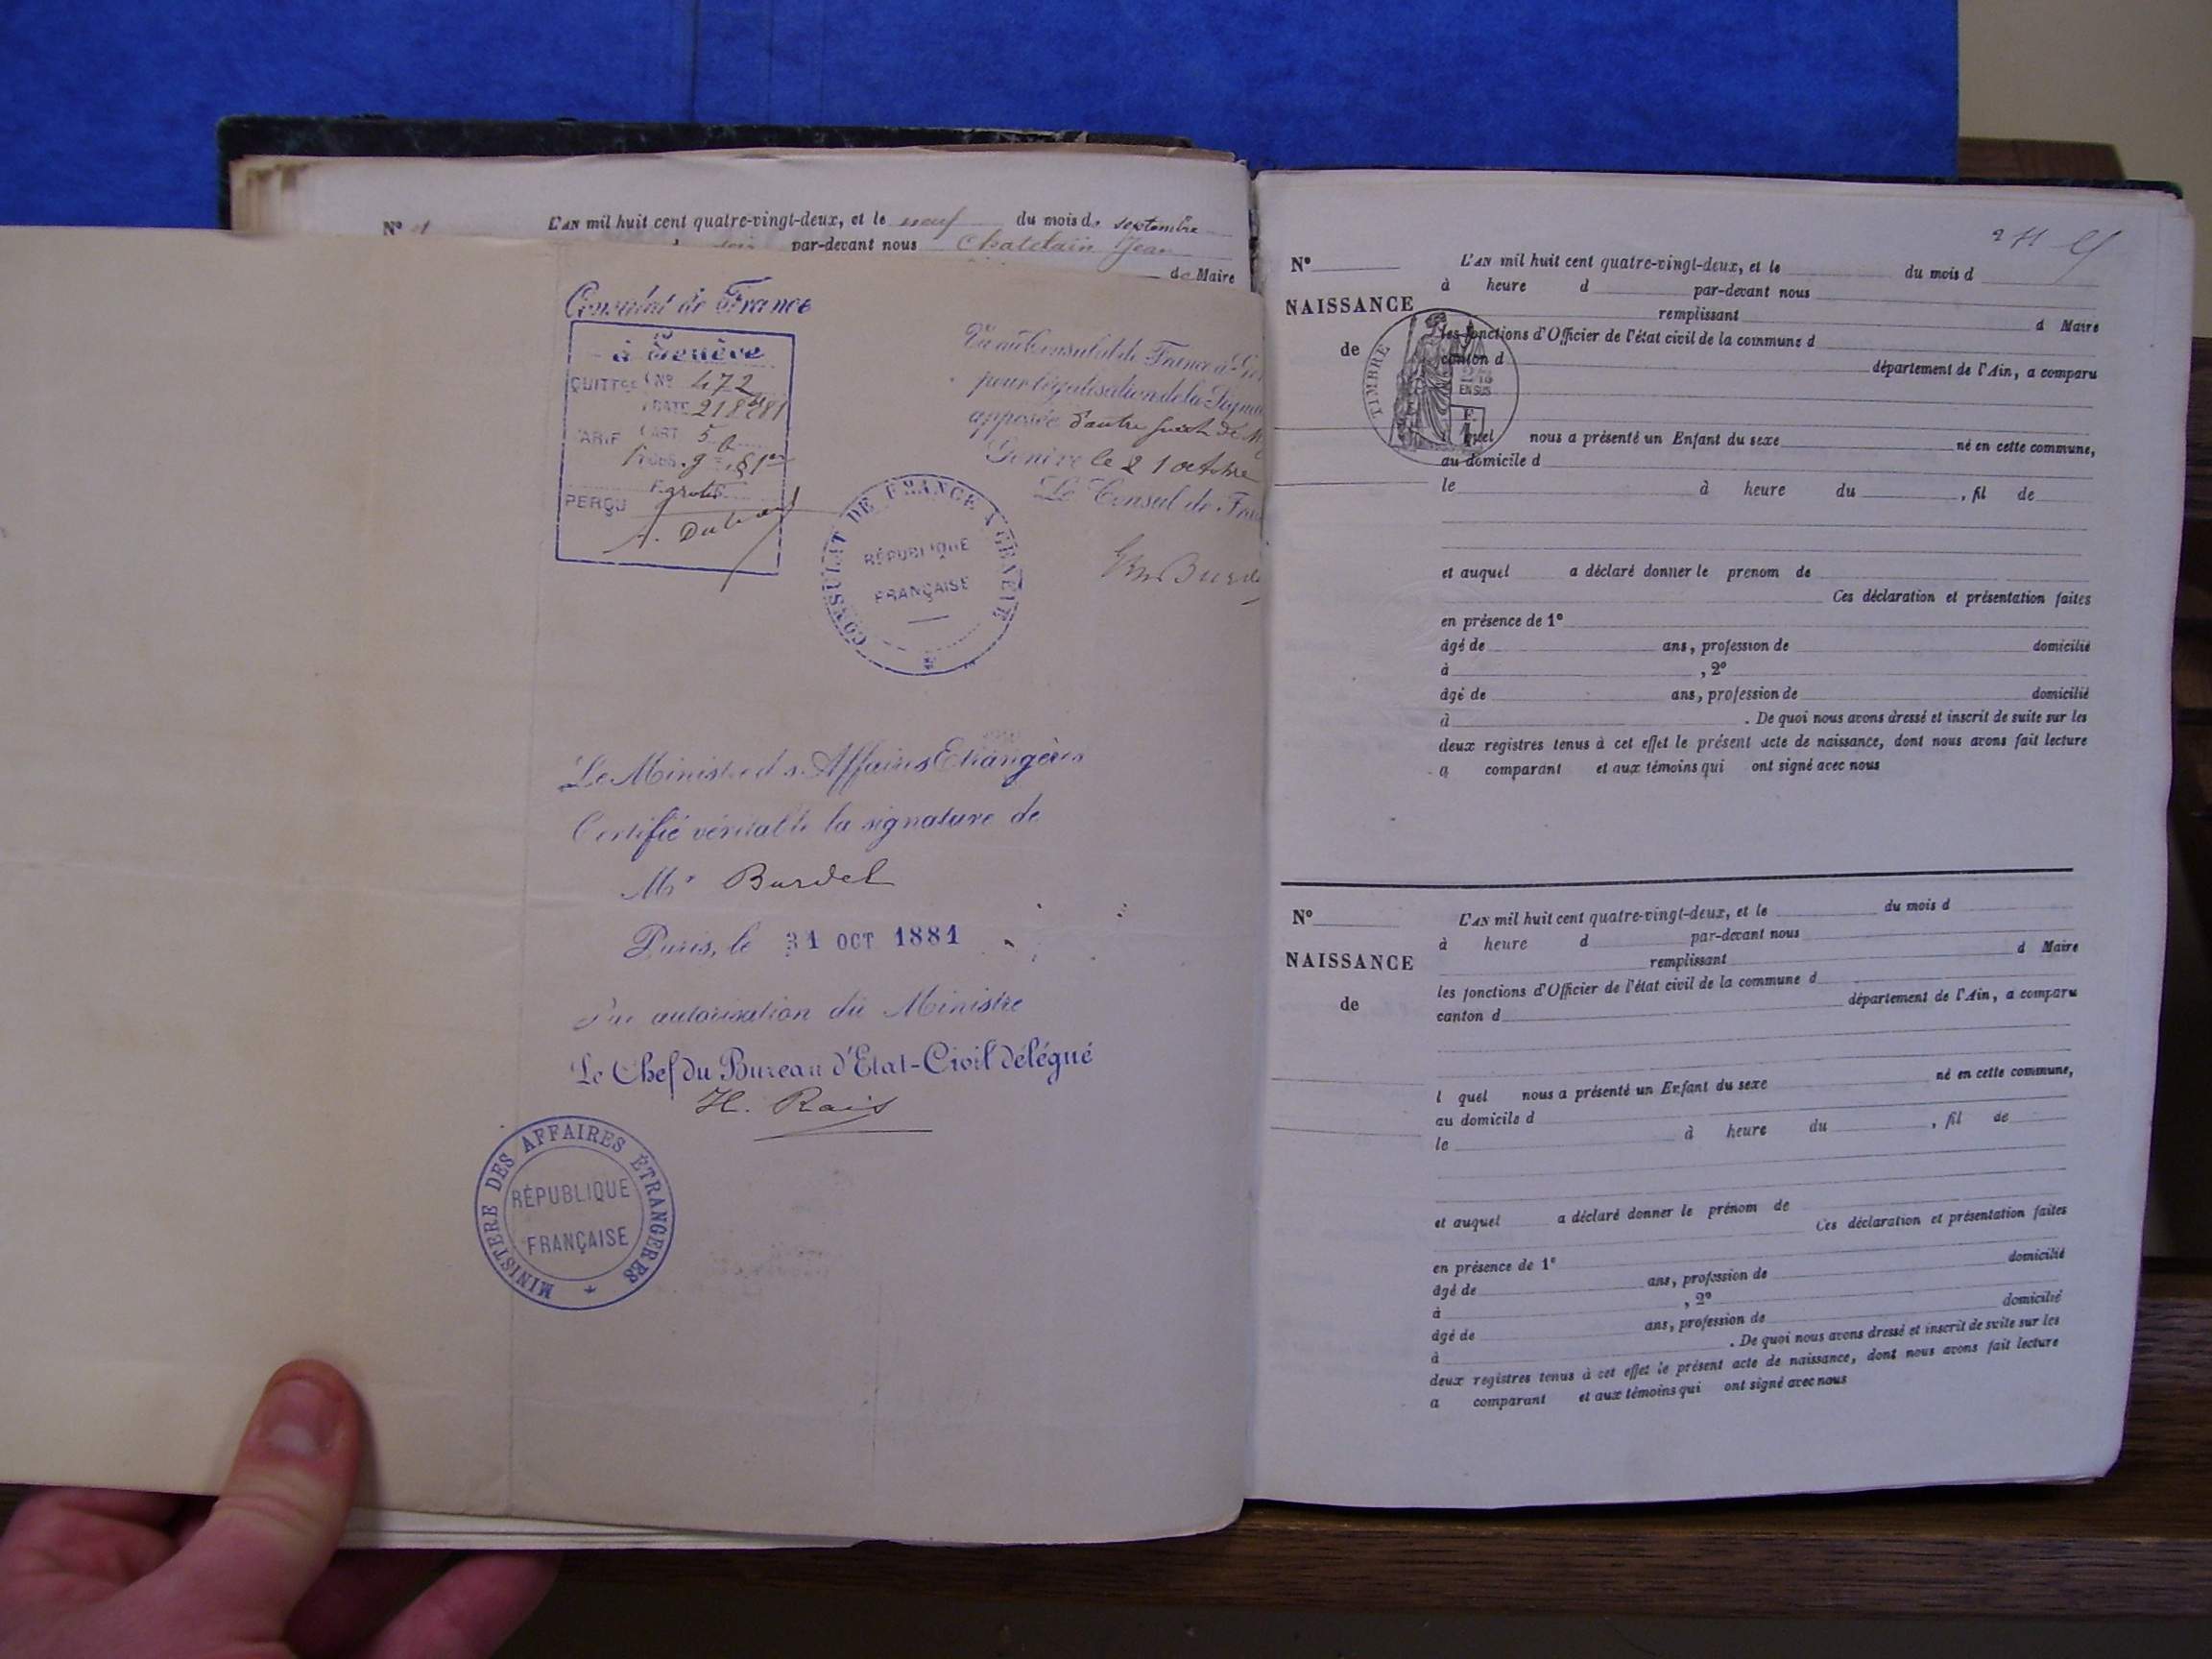 N° 
L'AN mil huit cent quatre-vingt-deux, et le neuf du mois de septembre
par-devant nous Chatelain Jean
de Maire
Consulat de France
à Genève
QUITTCE N° 472
DATE 21 8bre 81
TARIF ART 5
PERÇU gratis
Vu au Consulat de France à Ge
pour légalisation de la Signa
apposée d'autre part de M
Genève le 21 octobre
Le Consul de Fran
CONSULAT DE FRANCE À GENÈVE
RÉPUBLIQUE
FRANÇAISE
Le Ministre des Affaires Etrangères
Certifié véritable la signature de
Mr Burdel
Paris, le 31 OCT 1881
Par autorisation du Ministre
Le Chef du Bureau d'Etat-Civil délégué
H. Rais
MINISTERE DES AFFAIRES ÉTRANGERES
RÉPUBLIQUE
FRANÇAISE
N°
NAISSANCE
de
TIMBRE
EN SUS
L'AN mil huit cent quatre-vingt-deux, et le du mois d
à heure d par-devant nous
remplissant d Maire
les fonctions d'Officier de l'état civil de la commune d
canton d département de l'Ain, a comparu
quel nous a présenté un Enfant du sexe né en cette commune,
au domicile d
le à heure du , fil de
et auquel a déclaré donner le prenom de
Ces déclaration et présentation faites
en présence de 1°
âgé de ans, profession de domicilié
à , 2°
âgé de ans, profession de domicilié
à . De quoi nous avons dressé et inscrit de suite sur les
deux registres tenus à cet effet le présent acte de naissance, dont nous avons fait lecture
a comparant et aux témoins qui ont signé avec nous
N°
NAISSANCE
de
L'AN mil huit cent quatre-vingt-deux, et le du mois d
à heure d par-devant nous
remplissant d Maire
les fonctions d'Officier de l'état civil de la commune d
canton d département de l'Ain, a comparu
l quel nous a présenté un Enfant du sexe né en cette commune,
au domicile d
le à heure du , fil de
et auquel a déclaré donner le prénom de
Ces déclaration et présentation faites
en présence de 1°
âgé de ans, profession de domicilié
à , 2°
âgé de ans, profession de domicilié
à . De quoi nous avons dressé et inscrit de suite sur les
deux registres tenus à cet effet le présent acte de naissance, dont nous avons fait lecture
a comparant et aux témoins qui ont signé avec nous